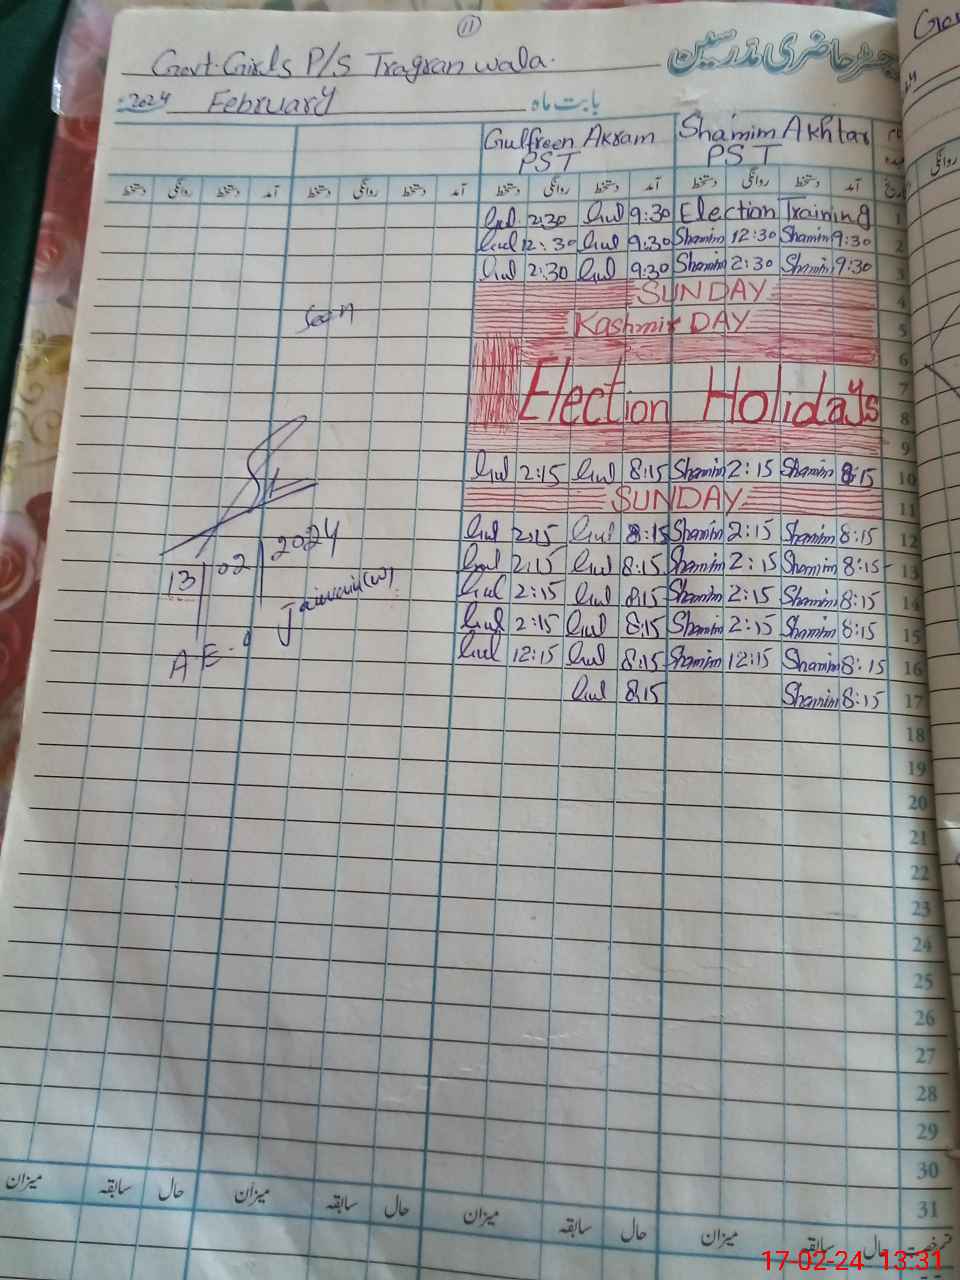 11
رجسٹر حاضری مدرسین
Govt. Girls P/S Tragran wala.
2024 February بابت ماہ
Gulfreen Akram Shamim Akhtar
PST PST
دستخط روانگی دستخط آمد دستخط روانگی دستخط آمد دستخط روانگی دستخط آمد دستخط روانگی دستخط آمد
Gul 2:30 Gul 9:30 Election Training 1
Gul 12:30 Gul 9:30 Shamim 12:30 Shamim 9:30 2
Gul 2:30 Gul 9:30 Shamim 2:30 Shamim 9:30 3
SUNDAY 4
Kashmir DAY 5
6
Election Holidays 7
8
9
Gul 2:15 Gul 8:15 Shamim 2:15 Shamim 8:15 10
SUNDAY 11
Gul 2:15 Gul 8:15 Shamim 2:15 Shamim 8:15 12
Gul 2:15 Gul 8:15 Shamim 2:15 Shamim 8:15 13
Gul 2:15 Gul 8:15 Shamim 2:15 Shamim 8:15 14
Gul 2:15 Gul 8:15 Shamim 2:15 Shamim 8:15 15
Gul 12:15 Gul 8:15 Shamim 12:15 Shamim 8:15 16
Gul 8:15 Shamim 8:15 17
Seen
13/02/2024
A.E.O
18
19
20
21
22
23
24
25
26
27
28
29
30
31
میزان سابقہ حال میزان سابقہ حال میزان سابقہ حال میزان سابقہ حال
17-02-24 13:31